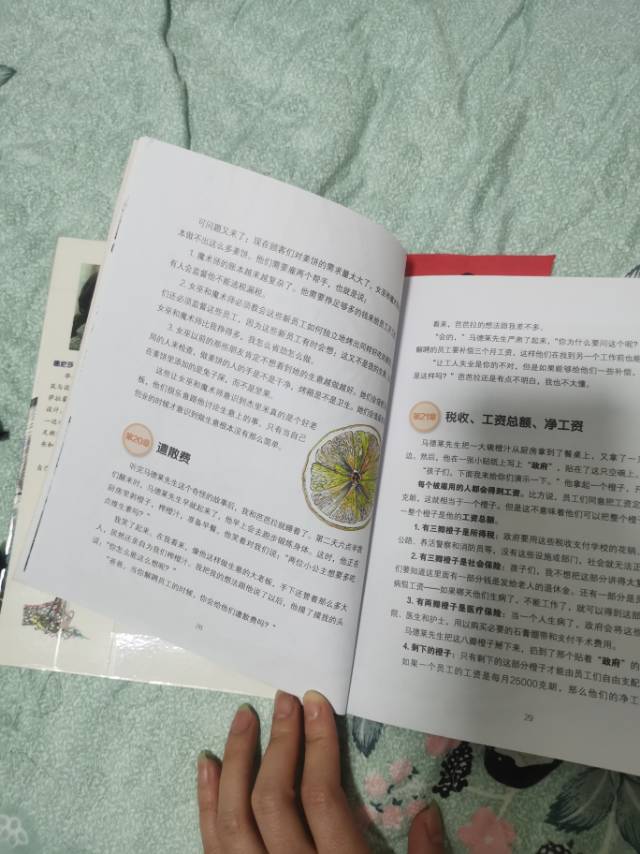 可问题又来了：现在顾客们对姜饼的需求量太大了，女巫和魔术
本做不出这么多姜饼。他们需要雇两个帮手，也就是说：
1. 魔术师的账本越来越复杂了。他需要挣足够多的钱来给员工
有人会监督他不能逃税漏税。
2. 女巫和魔术师必须教会这些新员工如何独立地烤出同样好吃的
们还必须监督这些员工，因为这些新员工有时会想：这又不是我的
女巫和魔术师比我挣得多，我怎么省劲怎么做。
3. 女巫以前的那些朋友肯定不希望到她的生意越做越好。她们会
局的人来检查，做姜饼的人的手是不是干净，烤箱是不是卫生。她们会
在姜饼里添加的是兔子屎，而不是坚果。
这些让女巫和魔术师意识到杰里米真的是个好老
板，他们很乐意跟他讨论生意上的事。只有当自己
做业的时候才意识到做生意根本没有那么简单。
第20章 遣散费
听完马德莱先生这个奇怪的故事后，我和芭芭拉就睡着了。第二天六点半我
们醒来时，马德莱先生早就起来了，他早上会去跑步锻炼身体。这时，他正在
厨房里剥橙子、榨橙汁，准备早餐。他笑着对我们说：“两位小公主想要多吃
点维生素吗？”
我笑了起来。在我看来，像他这样做生意的大老板，手下还管着那么多大
人，居然还亲自为我们榨橙汁。我把我的想法跟他说了以后，他摸了摸我的头
说：“你怎么能这么想呢？”
“爸爸，当你解聘员工的时候，你会给他们遣散费吗？”
28
看来，芭芭拉的想法跟我差不多。
“会的，”马德莱先生严肃了起来，“你为什么要问这个呢？
解聘的员工要补偿三个月工资。这样他们在找到另一个工作前也能
“让工人失业是你的不对，但是如果能够给他们一些补偿，
是这样吗？”芭芭拉还是有点不明白，我也不太懂。
第21章 税收、工资总额、净工资
马德莱先生把一大碗橙汁从厨房拿到了餐桌上，又拿了一
边。然后，他在一张小贴纸上写上“政府”，贴在了这只空碗上
“孩子们，下面我来给你们演示一下。”他拿起一个橙子，
每个被雇用的人都会得到工资。比方说，员工们同意把工资定
克朗，这就相当于一个橙子。但是这不意味着他们可以把整个橙
一整个橙子是他的工资总额。
1. 有三瓣橙子是所得税：政府要用这些税收支付学校的花销
公路、养活警察和消防员等，没有这些设施或部门，社会就无法正
2. 有三瓣橙子是社会保险：孩子们，我不想把这部分讲得太
们要知道这里面有一部分钱是发给老人的退休金。还有一部分是
病假工资——如果哪天他们生病了，不能工作了，就可以得到这部
3. 有两瓣橙子是医疗保险：当一个人生病了，政府会将这些
院、医生和护士，用以购买必要的石膏绷带和支付手术费用。
马德莱先生把这八瓣橙子掰下来，扔到了那个贴着“政府”的
4. 剩下的橙子：只有剩下的这部分橙子才能由员工们自由支配
如果一个员工的工资是每月25000克朗，那么他们的净工
29